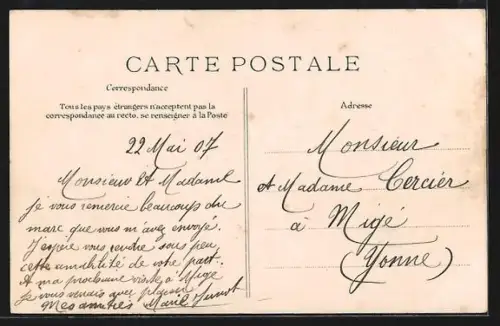 CARTE POSTALE
Correspondance
Tous les pays étrangers n'acceptent pas la
correspondance au recto, se renseigner à la Poste
22 Mai 07
Monsieur et Madame
je vous remercie beaucoup du
marc que vous m'avez envoyé.
J'espère vous rendre sous peu
cette amabilité de votre part.
A ma prochaine visite à Migé
je vous verrais avec plaisir
Mes amitiés
Adresse
Monsieur
et Madame Cercier
à Migé
(Yonne)